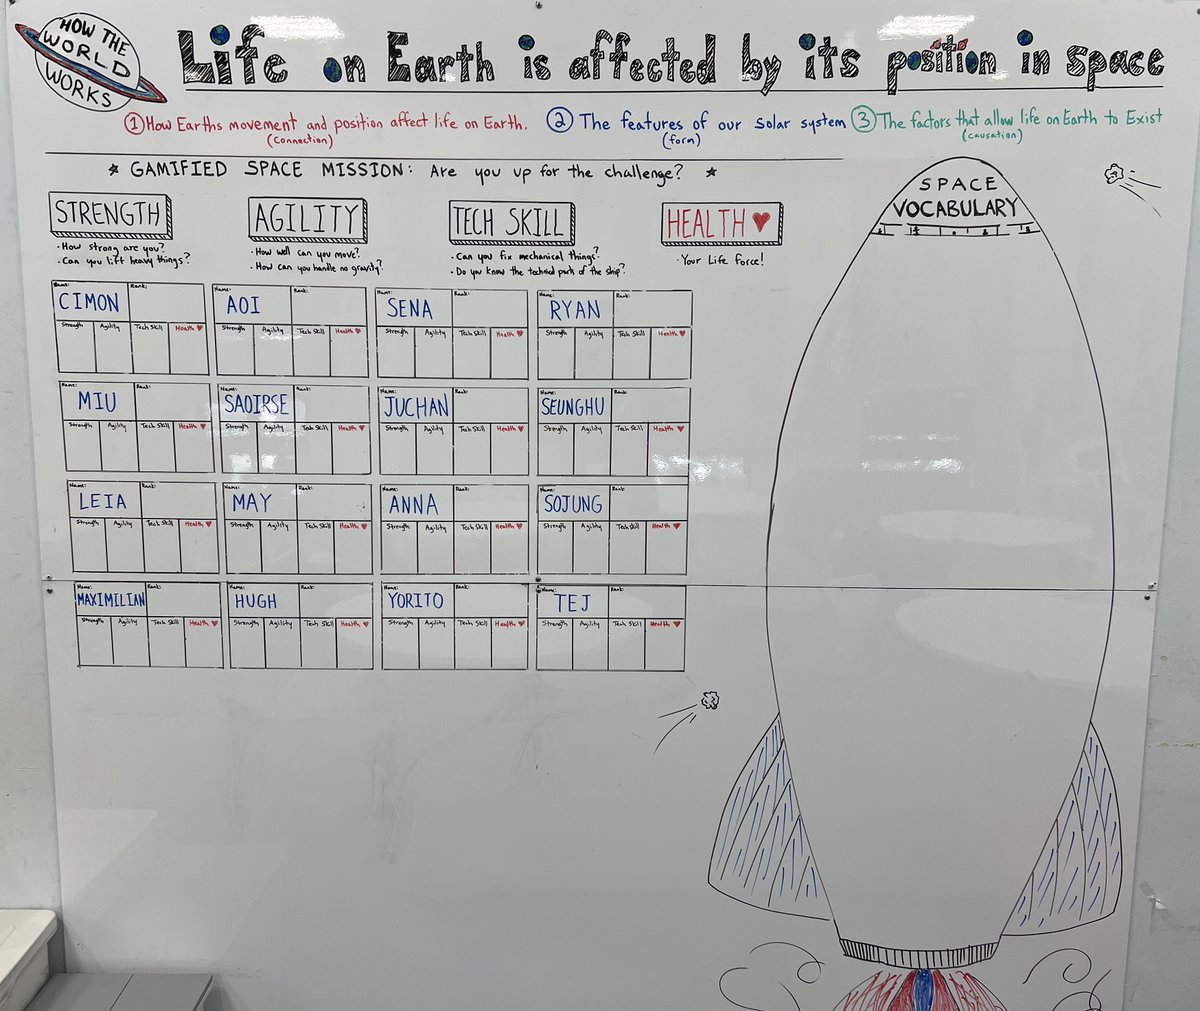 HOW THE
WORLD
WORKS
Life on Earth is affected by its position in space
① How Earths movement and position affect life on Earth.
(connection)
② The features of our solar system
(form)
③ The factors that allow life on Earth to Exist
(causation)
★ GAMIFIED SPACE MISSION: Are you up for the challenge? ★
STRENGTH
· How strong are you?
· Can you lift heavy things?
AGILITY
· How well can you move?
· How can you handle no gravity?
TECH SKILL
· Can you fix mechanical things?
· Do you know the technical parts of the ship?
HEALTH ♥
· Your Life Force!
Name: Rank: Name: Rank: Name: Rank: Name: Rank:
CIMON AOI SENA RYAN
Strength Agility Tech Skill Health ♥ Strength Agility Tech Skill Health ♥ Strength Agility Tech Skill Health ♥ Strength Agility Tech Skill Health ♥
Name: Rank: Name: Rank: Name: Rank: Name: Rank:
MIU SAOIRSE JUCHAN SEUNGHU
Strength Agility Tech Skill Health ♥ Strength Agility Tech Skill Health ♥ Strength Agility Tech Skill Health ♥ Strength Agility Tech Skill Health ♥
Name: Rank: Name: Rank: Name: Rank: Name: Rank:
LEIA MAY ANNA SOJUNG
Strength Agility Tech Skill Health ♥ Strength Agility Tech Skill Health ♥ Strength Agility Tech Skill Health ♥ Strength Agility Tech Skill Health ♥
Name: Rank: Name: Rank: Name: Rank: Name: Rank:
MAXIMILIAN HUGH YORITO TEJ
Strength Agility Tech Skill Health ♥ Strength Agility Tech Skill Health ♥ Strength Agility Tech Skill Health ♥ Strength Agility Tech Skill Health ♥
SPACE
VOCABULARY